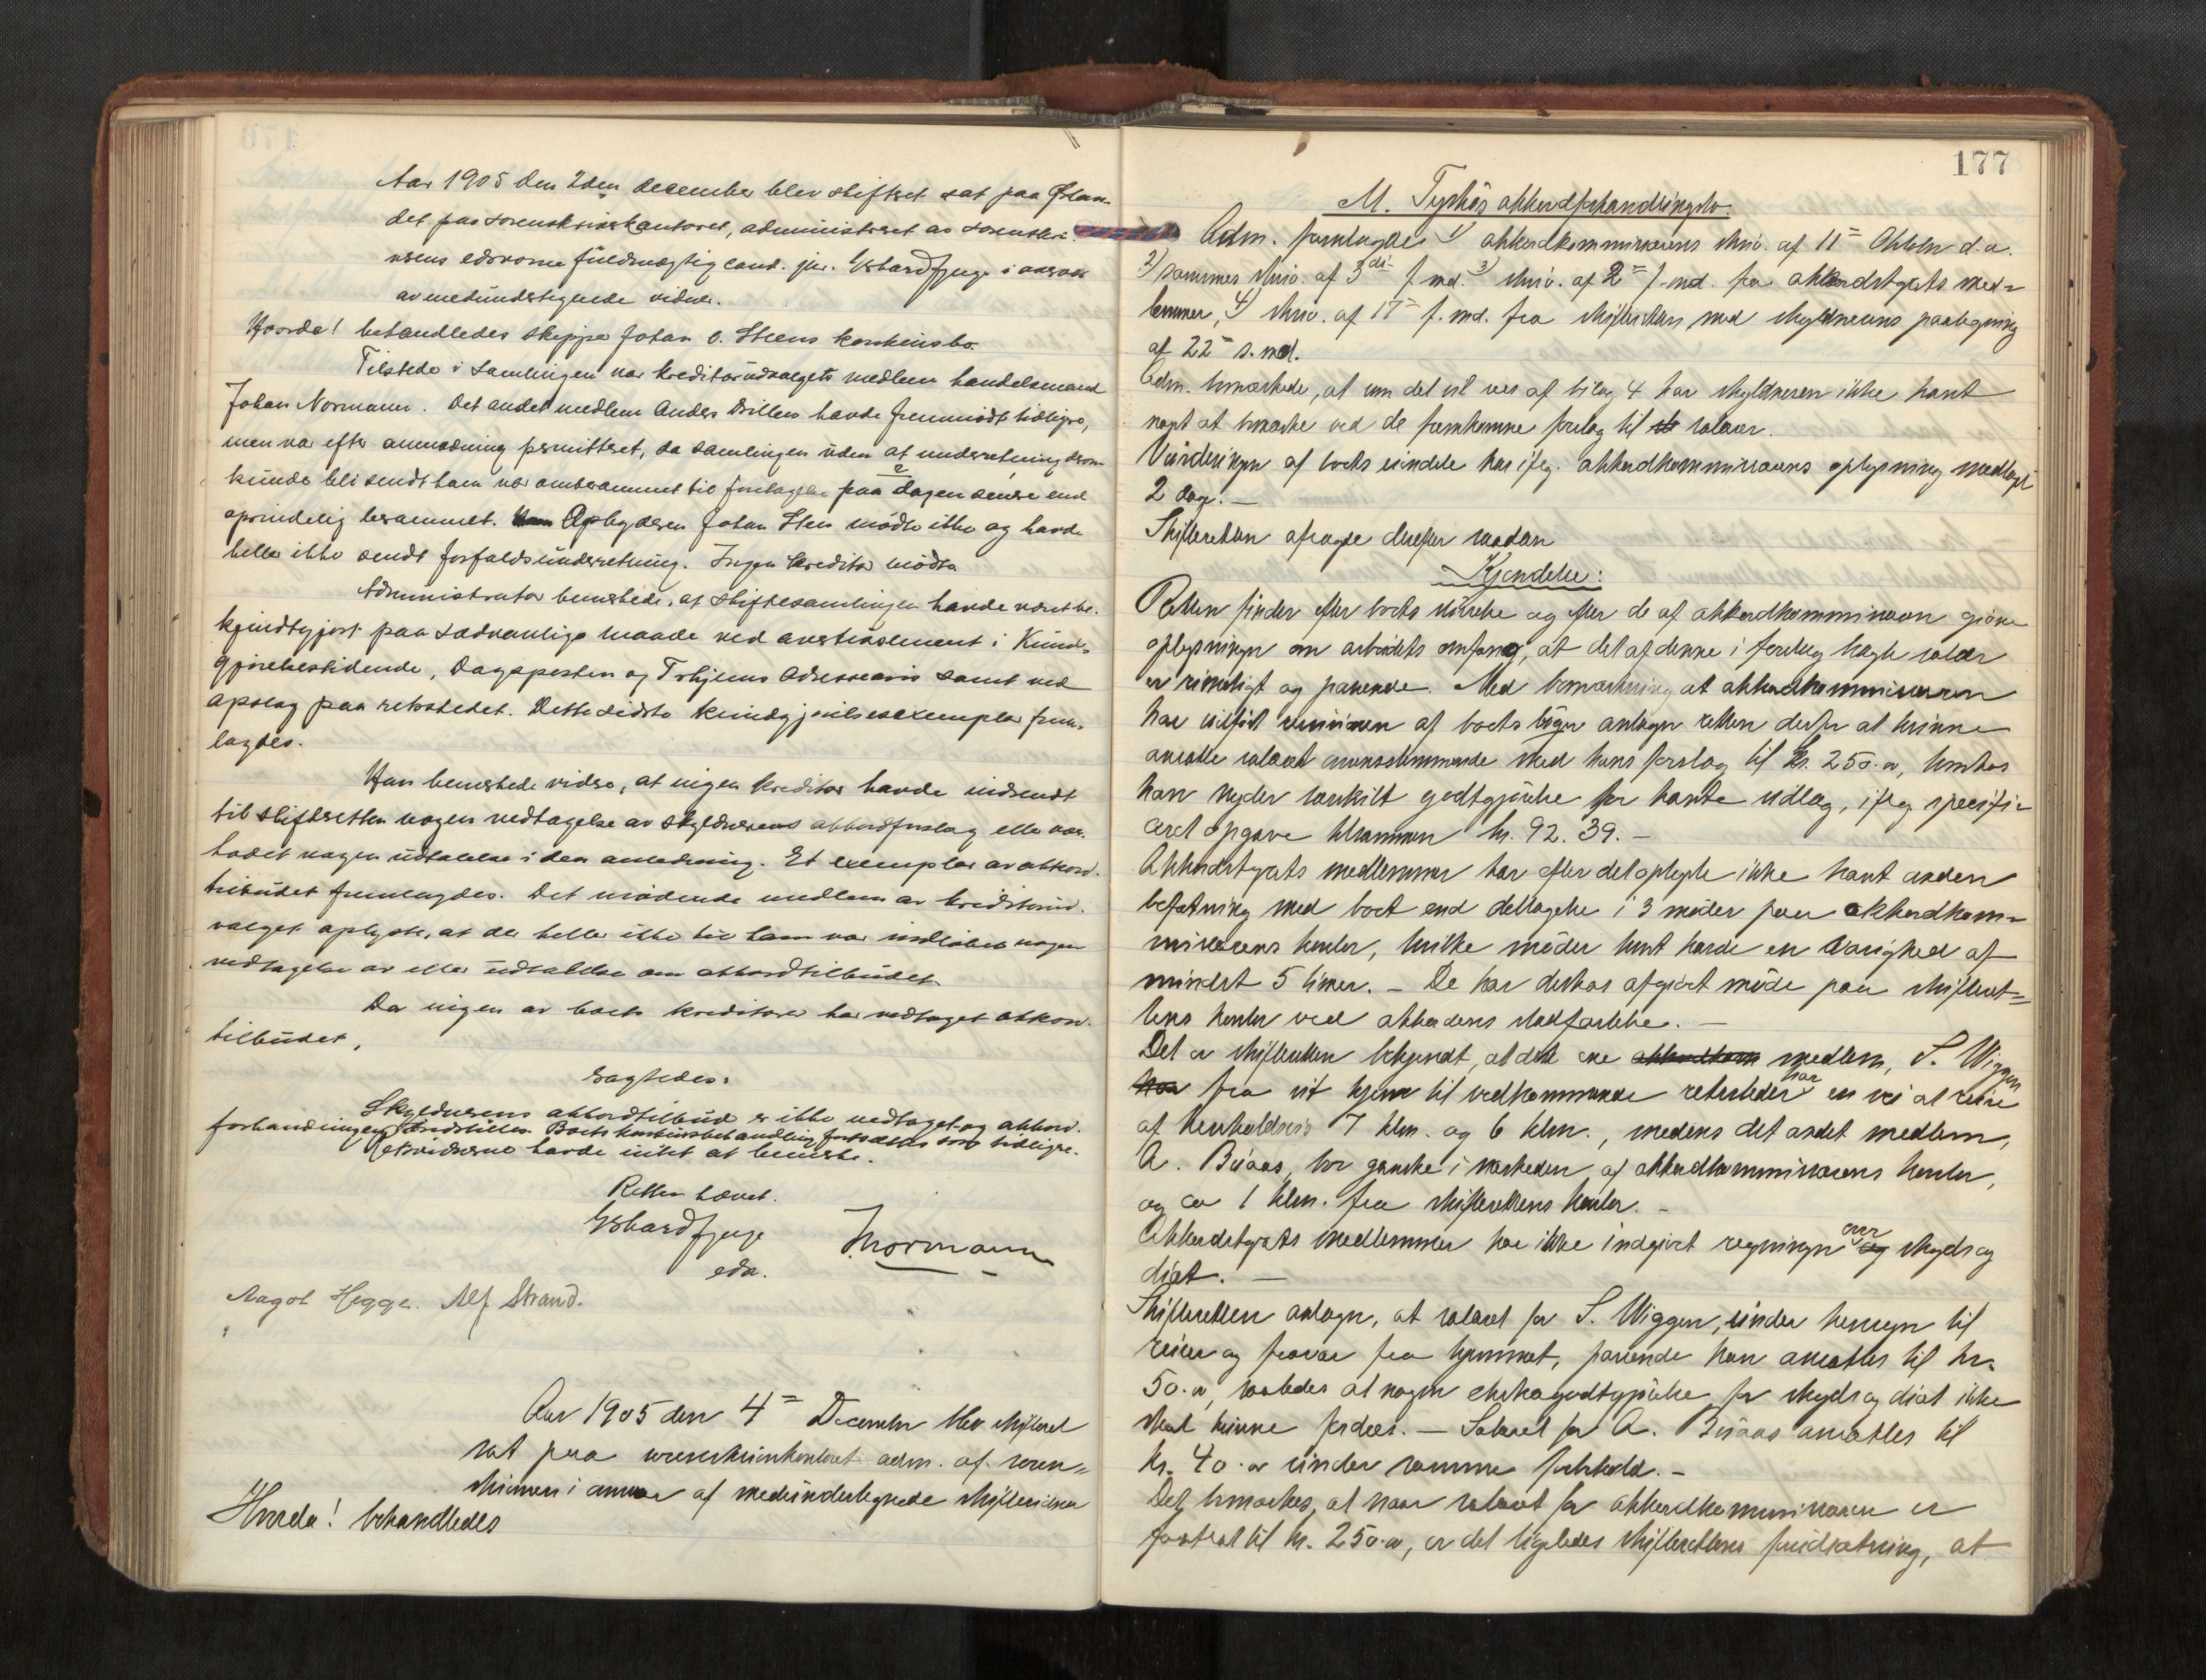 Aar 1905 den 2den december blev skifteret sat paa Ørlan-
det paa sorenskriverkontoret, administreret av sorenskri-
verens edsvorne fuldmægtig cand. jur. Ysbard Fjerge i overvær
av medundertegnede vidner.
Hvorda! behandledes skipper Johan O. Steens konkursbo.
Tilstede i samlingen var kreditorudvalgets medlem handelsmand
Johan Normann. Det andet medlem Anders Brillen havde fremmødt tidligere,
men var efter anmodning permitteret, da samlingen uden at underretning derom
kunde bli sendt ham var omberammet til foretagelse paa 2 dagen senere end
oprindelig berammet. Opbyderen Johan Sten mødte ikke og havde
heller ikke sendt forfaldsunderretning. Ingen kreditor mødte.
Administrator bemerkede, at skiftesamlingen havde været be-
kjendtgjort paa sædvanlige maade ved avertissement i Kund-
gjørelsestidende, Dagsposten og Trhjems Adresseavis samt ved
opslag paa retsstedet. Dette sidste kundgjørelsesexemplar frem-
lagdes.
Han bemerkede videre, at ingen kreditor havde indsendt
til skifteretten nogen vedtagelse av skyldnerens akkordforslag eller over-
hodet nogen udtalelse i den anledning. Et exemplar av akkord-
tilbudet fremlagdes. Det mødende medlem av kreditorud-
valget oplyste, at der heller ikke til ham var indløbet nogen
vedtagelse av eller udtalelse om akkordtilbudet.
Da ingen av boets kreditorer har vedtaget akkord-
tilbudet,
sagtedes:
Skyldnerens akkordtilbud er ikke vedtaget og akkord-
forhandlingen indstilles. Boets konkursbehandling fortsættes som tidligere.
Retsvidnerne havde intet at bemerke.
Retten hævet.
Ysbard Fjerge
eds.
J. Normann
Aagot Hegge. Alf Strand.
Aar 1905 den 4= December blev skifteret
sat paa sorenskriverkontoret adm. af soren-
skriveren i overvær af medundertegnede skiftevidner
Hvorda! behandledes
177
M. Tyskös akkordforhandlingsbo.
Adm. fremlagde 1) akkordkommissærens skriv. af 11= Oktbr. d.a.
2) sammes skriv. af 3di f. md. 3) skriv. af 2= f. md. fra akkordstyrets med-
lemmer, 4) skriv. af 17= f. md. fra skifteretten med skyldnerens paategning
af 22= s. md.
Adm. bemærkede, at som det vil sees af bilag 4 har skyldneren ikke havt
noget at bemærke ved de fremkomne forslag til salær.
Vurderingen af boets eiendele har ifølg. akkordkommissærens oplysning medtaget
2 dage. —
Skifteretten afsagde derefter saadan
Kjendelse:
Retten finder efter boets størrelse og efter de af akkordkommissæren givne
oplysninger om arbeidets omfang, at det af denne i forslag bragte salær
er rimeligt og passende. Med bemærkning at akkordkommissæren
har udført revisionen af boets bøger antager retten derfor at kunne
ansætte salæret overensstemmende med hans forslag til kr. 250.oo, hvorhos
han nyder særskilt godtgjørelse for havte udlæg, ifølg specifi-
ceret opgave tilsammen kr. 92.39. —
Akkordstyrets medlemmer har efter det oplyste ikke havt anden
befatning med boet end deltagelse i 3 møder paa akkordkom-
missærens kontor, hvilke møder hvert havde en varighed af
mindst 5 timer. — De har derhos afgivet møde paa skifteret-
tens kontor ved akkordens stadfæstelse. —
Det er skifteretten bekjendt, at det ene akkordkom medlem, S. Wiggen
har fra sit hjem til vedkommende retssteder har en vei at reise
af henholdsvis 7 klm. og 6 klm., medens det andet medlem,
A. Buaas, bor ganske i nærheden af akkordkommissærens kontor,
og ca 1 klm. fra skifterettens kontor. —
Akkordstyrets medlemmer har ikke indgivet regninger over og skyds og
diæt. —
Skifteretten antager, at salæret for S. Wiggen, under hensyn til
reiser og fravær fra hjemmet, passende kan ansættes til kr.
50.oo, saaledes at nogen ekstragodtgjørelse for skyds og diæt ikke
skal kunne fordres. — Salæret for A. Buaas ansættes til
kr. 40.oo under samme forbehold. —
Det bemærkes, at naar salæret for akkordkommissæren er
fastsat til kr. 250.oo, er det ligeledes skifterettens forudsætning, at